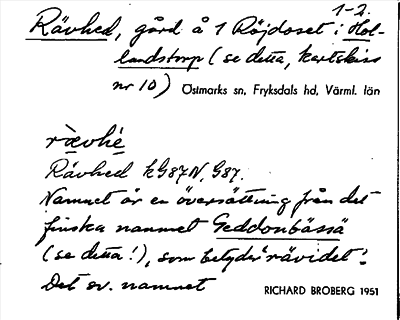 1-2.
Rävhed, gård å 1 Röjdoset i Hol-
landstorp (se detta, kartskiss
nr 10) Östmarks sn, Fryksdals hd, Värml. län
rävhé
Rävhed kG87N, G87.
Namnet är en översättning från det
finska namnet Geddonbässä
(se detta!), som betyder 'rävidet'.
Det sv. namnet
RICHARD BROBERG 1951